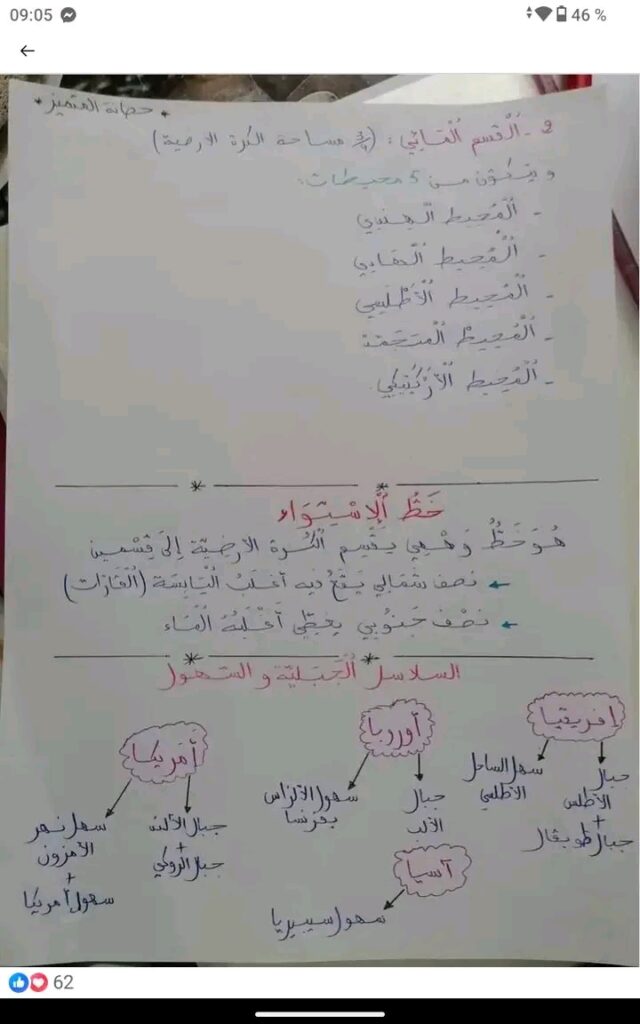 09:05
46 %
* حصانة المتميز *
2 - اَلْقسم اَلْمَائِي: (3/4 مساحة الكرة الارضية)
و يتكون من 5 محيطات:
- اَلْمُحيط الهندي
- اَلْمُحيط الهادي
- اَلْمُحيط اَلْأَطْلَسِي
- اَلْمُحيط المتجمد
- اَلْمُحيط الْأَرْكْتِيكِي
خَطُّ اَلْإِسْتِوَاء
هُوَ خَطٌّ وَهْمِي يقَسِم الْكُرة الارضية إِلَى قِسْمين
نصف شَمَالي يَقَعُ فيه أغلب الْيَابِسَة (الْقَارات)
نصْف جَنُوبي يغطي أَغْلَبُهُ الْمَاء
السلاسل الْجَبَليّة و السهول
إفريقيا
أوروبا
أمريكا
جبال الأطلس + جبال طوبقال
سهل الساحل الأطلسي
جبال الألب
سهول الألزاس بفرنسا
جبال الأند + جبال الروكي
سهل نهر الأمزون + سهول أمريكا
آسيا
سهول سيبيريا
62